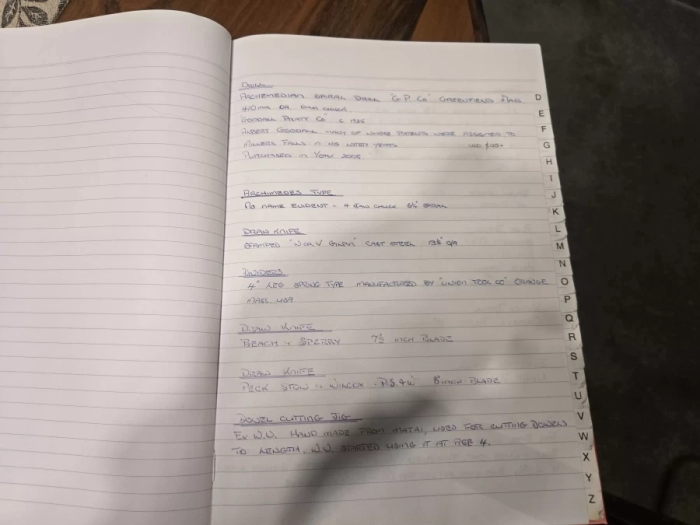 DRILL
ARCHEMEDIAN SPIRAL DRILL "G.P. Co" GREENFIELD MASS
GOODELL PRATT Co c 1925
ALBERT GOODELL MANY OF WHOSE PATENTS WERE ASSIGNED TO
MILLERS FALLS IN HIS LATER YEARS
PURCHASED IN YORK 2005
ARCHIMEDES TYPE
NO NAME EVIDENT - 4 JAW CHUCK
DRAW KNIFE
STAMPED CAST STEEL
DIVIDERS
4" LEG SPRING TYPE MANUFACTURED BY "UNION TOOL CO" ORANGE
MASS. USA
DRAW KNIFE
BEACH & SPERRY 7½ INCH BLADE
DRAW KNIFE
PECK STOW & WILCOX 8 INCH BLADE
DOWEL CUTTING JIG
EX W.W. HAND MADE FROM METAL, USED FOR CUTTING DOWELS
TO LENGTH, W.W. STARTED USING IT AT
D
E
F
G
H
I
J
K
L
M
N
O
P
Q
R
S
T
U
V
W
X
Y
Z